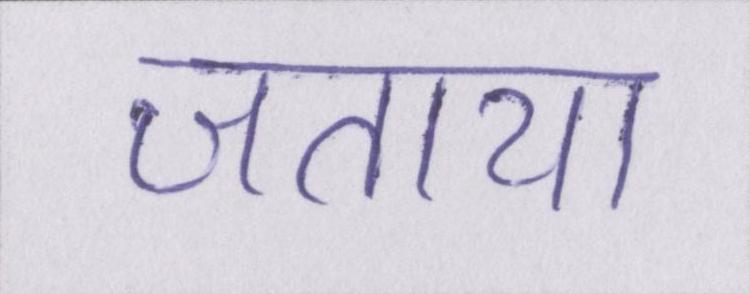 जताया